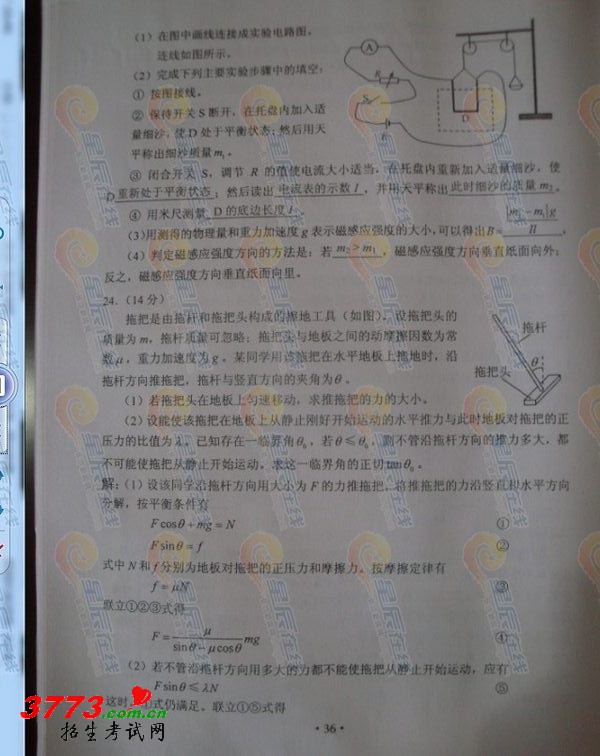 (1) 在图中画线连接成实验电路图。
连线如图所示。
(2) 完成下列主要实验步骤中的填空:
① 按图接线。
② 保持开关S断开,在托盘内加入适
量细沙,使D处于平衡状态;然后用天
平称出细沙质量m₁。
③ 闭合开关 S,调节 R 的值使电流大小适当,在托盘内重新加入适量细沙,使
D重新处于平衡状态;然后读出 电流表的示数 I,并用天平称出 此时细沙的质量 m₂。
④ 用米尺测量 D的底边长度 l。
(3)用测得的物理量和重力加速度g表示磁感应强度的大小,可以得出B= |m₂-m₁|g / Il 。
(4) 判定磁感应强度方向的方法是:若 m₂>m₁ ,磁感应强度方向垂直纸面向外;
反之,磁感应强度方向垂直纸面向里。
A
R
S
E
D
24.(14分)
拖把是由拖杆和拖把头构成的擦地工具(如图)。设拖把头的
质量为 m,拖杆质量可忽略;拖把头与地板之间的动摩擦因数为常
数μ,重力加速度为g。某同学用该拖把在水平地板上拖地时,沿
拖杆方向推拖把,拖杆与竖直方向的夹角为θ。
拖杆
θ
拖把头
(1) 若拖把头在地板上匀速移动,求推拖把的力的大小。
(2)设能使该拖把在地板上从静止刚好开始运动的水平推力与此时地板对拖把的正
压力的比值为λ。已知存在一临界角θ₀,若θ≤θ₀,则不管沿拖杆方向的推力多大,都
不可能使拖把从静止开始运动。求这一临界角的正切tanθ₀。
解:(1) 设该同学沿拖杆方向用大小为 F 的力推拖把。将推拖把的力沿竖直和水平方向
分解,按平衡条件有
Fcosθ+mg=N ①
Fsinθ=f ②
式中 N 和 f 分别为地板对拖把的正压力和摩擦力。按摩擦定律有
f=μN ③
联立①②③式得
F= μ / (sinθ-μcosθ) mg ④
(2) 若不管沿拖杆方向用多大的力都不能使拖把从静止开始运动,应有
Fsinθ≤λN ⑤
这时,①式仍满足。联立①⑤式得
· 36 ·
3773.com.cn
招生考试网
星辰在线